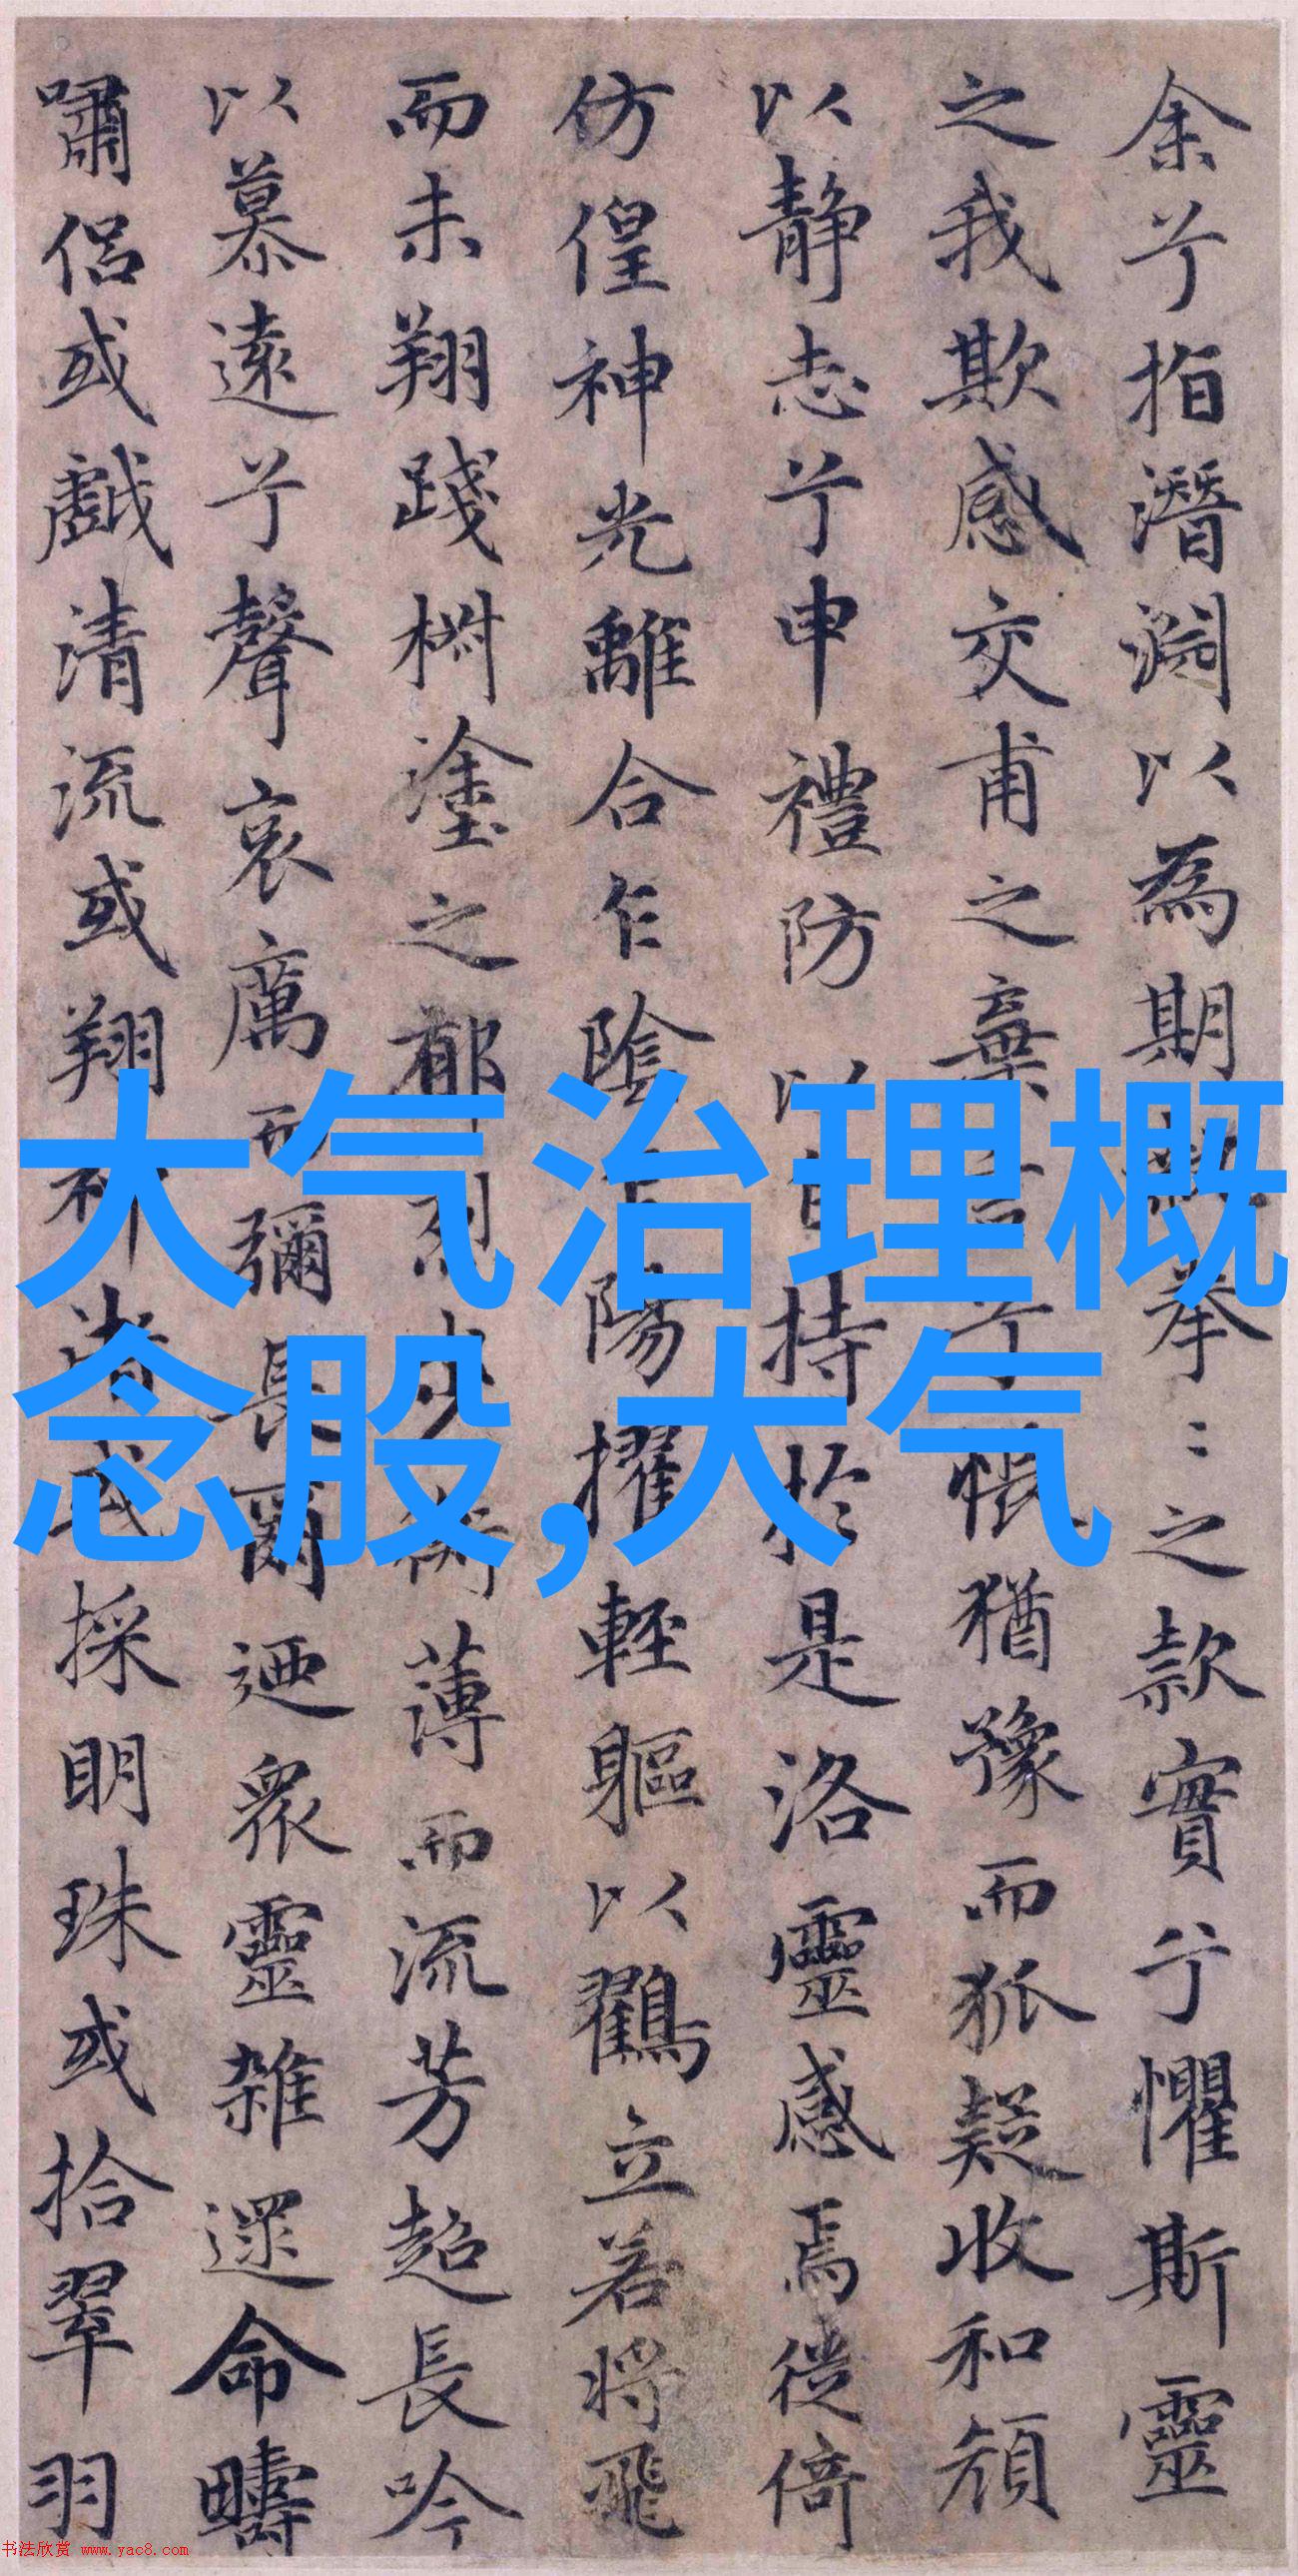 余兮指潛淵以為期
拳〻之款實兮懼斯靈
之我欺感交甫之棄
悵猶豫而狐疑收和顏
以靜志兮申禮防以自持於是洛靈感焉徙倚
仿偟神光離合乍陰
陽擢輕軀以鶴立若將飛
而未翔踐椒塗之郁烈
薄而流芳超長吟
以慕遠兮聲哀厲而彌長爾迺衆靈雜遝命疇
嘯侶或戲清流或翔
或採明珠或拾翠羽
大气治理概
念股,大气
书法欣赏 www.yac8.com